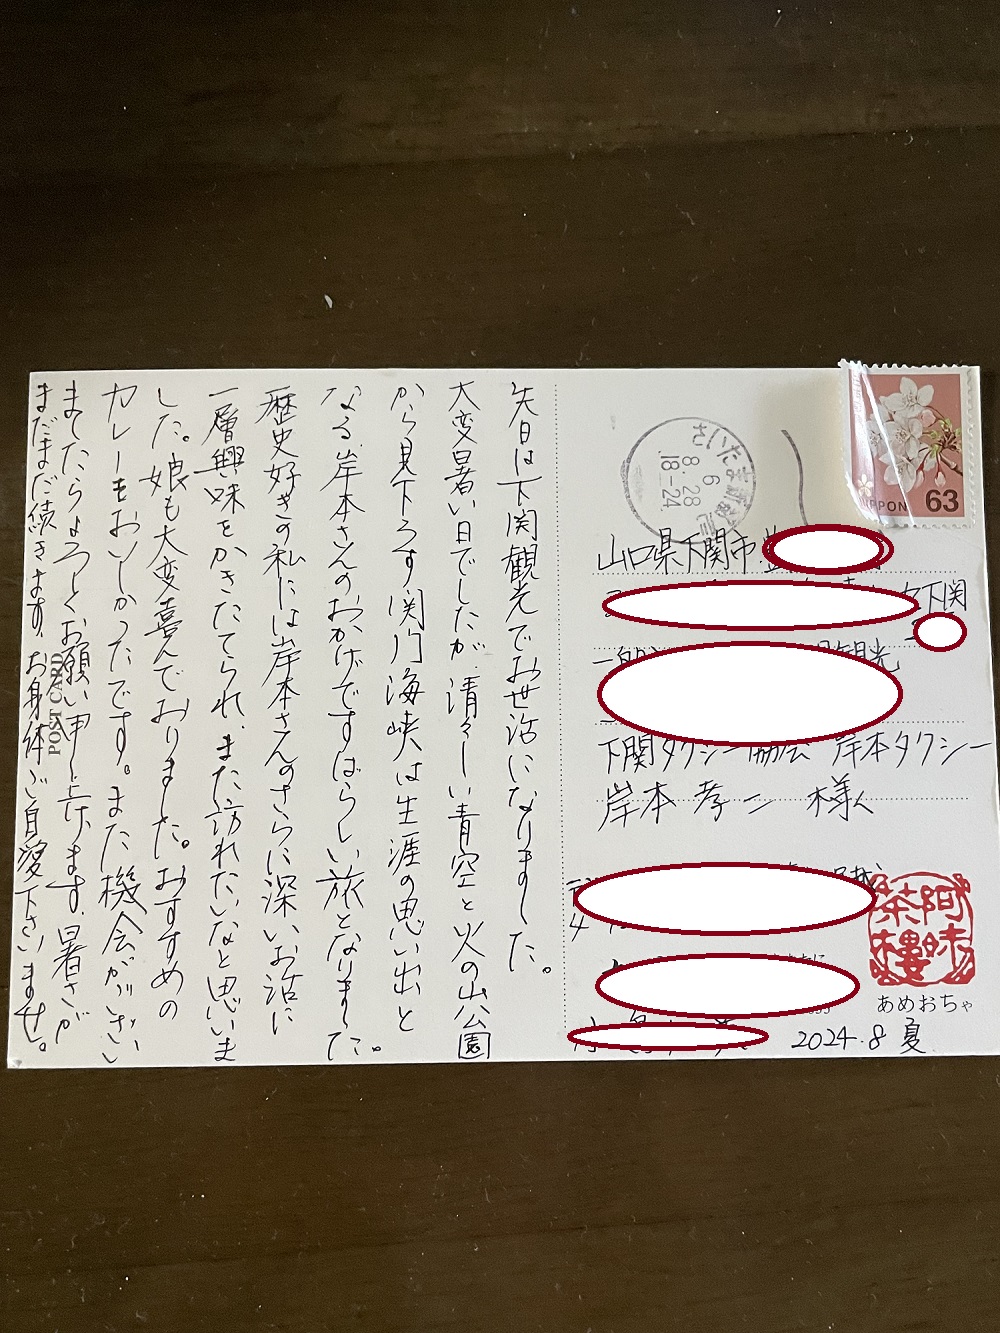 先日は下関観光でお世話になりました。
大変暑い日でしたが清々しい青空と火の山公園
から見下ろす関門海峡は生涯の思い出と
なる、岸本さんのおかげですばらしい旅となりました。
歴史好きの私には岸本さんのさらに深いお話に
一層興味をかきたてられ、また訪れたいなと思いま
した。娘も大変喜んでおりました。おすすめの
カレーもおいしかったです。また機会がございい
ましたらよろしくお願い申し上げます。暑さが
まだまだ続きます、お身体ご自愛下さいませ。
POST CARD
さいたま新都心
6
8 28
18-24
NIPPON 63
山口県下関市
下関
観光
下関タクシー協会 岸本タクシー
岸本 孝二 様
阿妹
茶樓
あめおちゃ
2024.8 夏